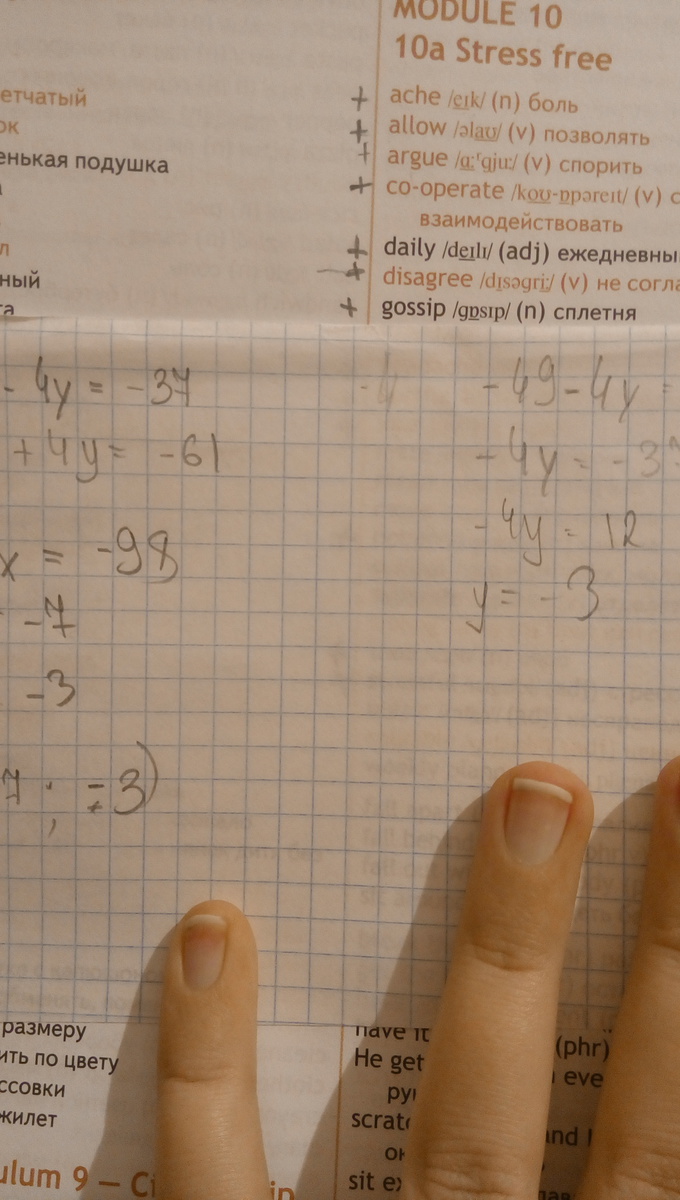 MODULE 10
10a Stress free
етчатый
ок
енькая подушка
а
л
ный
та
+ ache /eɪk/ (n) боль
+ allow /əlaʊ/ (v) позволять
+ argue /ɑːʳgjuː/ (v) спорить
+ co-operate /koʊ-ɒpəreɪt/ (v) с
взаимодействовать
+ daily /deɪlɪ/ (adj) ежедневны
+ disagree /dɪsəgriː/ (v) не согла
+ gossip /gɒsɪp/ (n) сплетня
- 4y = -37
+ 4y = -61
x = -98
-7
-3
7 ; -3)
-4
-49 - 4y =
-4y = -3
-4y = 12
y = -3
размеру
ить по цвету
ссовки
жилет
ulum 9 – Ci
have it
He get
(phr)
eve
scrat
and
sit ex